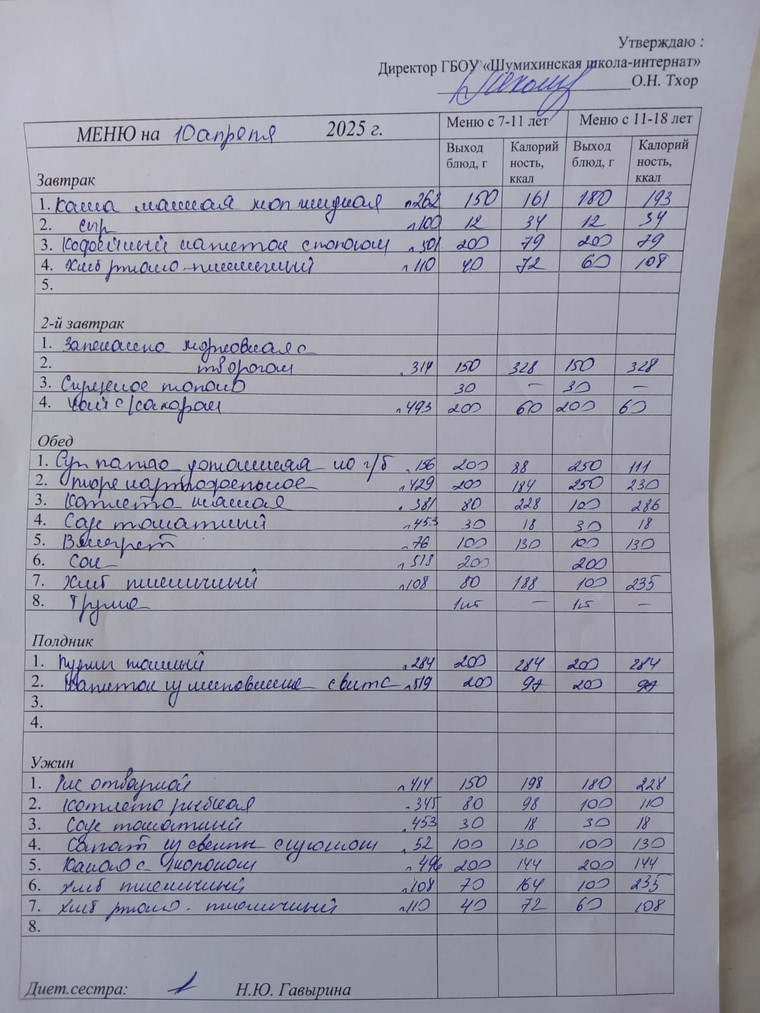 Утверждаю :
Директор ГБОУ «Шумихинская школа-интернат»
О.Н. Тхор
МЕНЮ на 10 апреля 2025 г. Меню с 7-11 лет Меню с 11-18 лет
Завтрак Выход блюд, г Калорий ность, ккал Выход блюд, г Калорий ность, ккал
1. Каша манная мол жидкая л262 150 161 180 193
2. сыр л100 12 34 12 34
3. Кофейный напиток с молоком л501 200 79 200 79
4. Хлеб ржано-пшеничный л110 40 72 60 108
5.
2-й завтрак
1. Запеканка морковная с
2. творогом л314 150 328 150 328
3. Сгущеное молоко 30 – 30 –
4. Чай с/сахаром л493 200 60 200 60
Обед
1. Суп домашняя на г/б л156 200 88 250 111
2. пюре картофельное л429 200 184 250 230
3. Котлета мясная л381 80 228 100 286
4. Соус томатный л453 30 18 30 18
5. Винегрет л76 100 130 100 130
6. Сок л518 200 200
7. Хлеб пшеничный л108 80 188 100 235
8. Груша 1шт – 1шт –
Полдник
1. л284 200 284 200 284
2. Напиток л519 200 97 200 97
3.
4.
Ужин
1. Рис отварной л414 150 198 180 228
2. Котлета рыбная л345 80 98 100 110
3. Соус томатный л453 30 18 30 18
4. Салат из свеклы л52 100 130 100 130
5. Какао с молоком л496 200 144 200 144
6. Хлеб пшеничный л108 70 164 100 235
7. Хлеб ржано-пшеничный л110 40 72 60 108
8.
Диет.сестра: Н.Ю. Гавырина